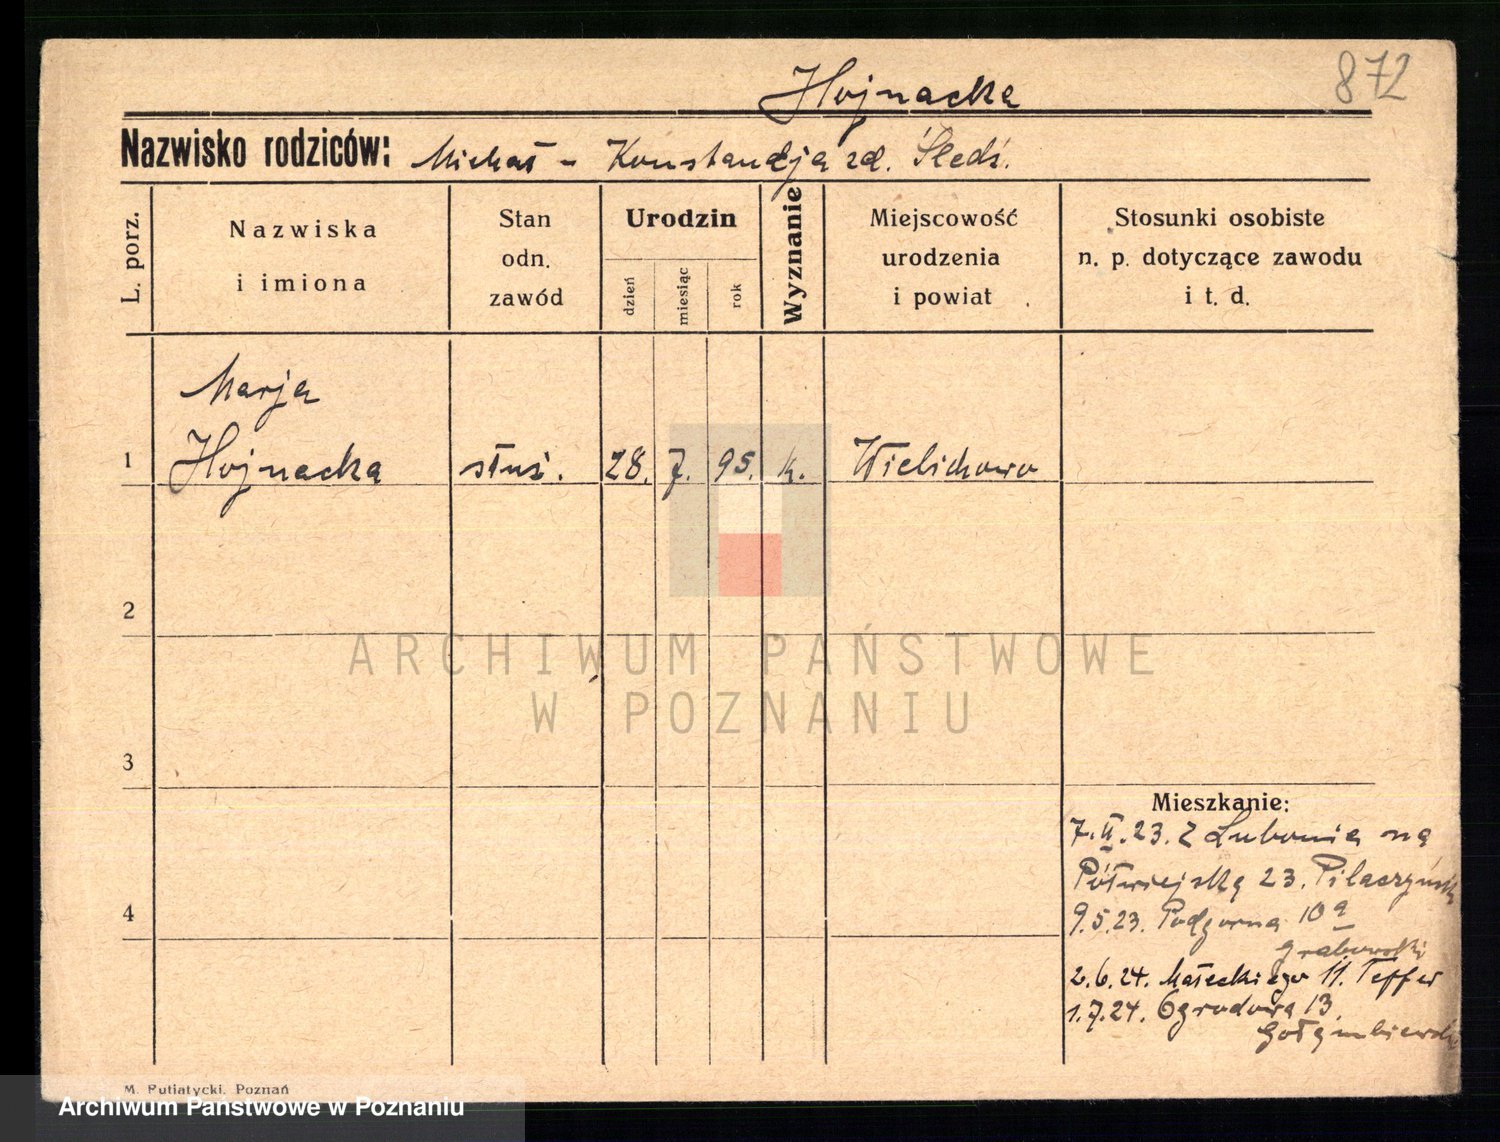 Hojnacka
872
Nazwisko rodziców: Michał - Konstandja zd. Śledź.
L. porz.
Nazwiska
i imiona
Stan
odn.
zawód
Urodzin
dzień
miesiąc
rok
Wyznanie
Miejscowość
urodzenia
i powiat
Stosunki osobiste
n. p. dotyczące zawodu
i t. d.
Marja
1 Hojnacka służ. 28. 7. 95. k. Wielichowo
2
ARCHIWUM PAŃSTWOWE
W POZNANIU
3
Mieszkanie:
7.II.23. z Lubonia na
Półwiejską 23. Pilaczyńsk
4
9.5.23. Podgórna 10a
Grabowski
2.6.24. Małeckiego 11. Teffer
1.7.24. Ogrodowa 13.
Gołembiewsk
M. Putiatycki, Poznań
Archiwum Państwowe w Poznaniu